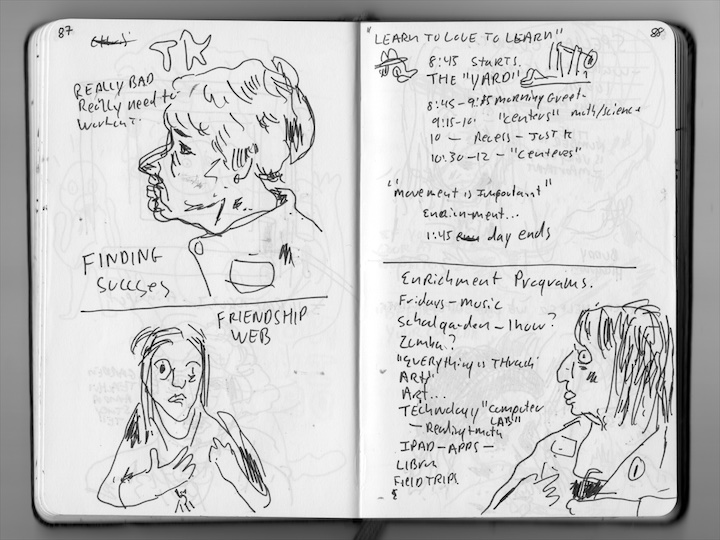 87
TK
REALLY BAD
Really need to
workout.
FINDING
SUCCESS
FRIENDSHIP
WEB
88
"LEARN TO LOVE TO LEARN"
8:45 STARTS.
THE "YARD"
8:45 - 9:15 morning Greet.
9:15-10 "Centers" math/science
10 - Recess - JUST K
10:30-12 - "Centeres"
"Movement is Important"
Enrichment...
1:45 day ends
Enrichment Programs.
Fridays - music
School garden - 1 hour?
Zumba?
"EVERYthing is Through
ART"
Art...
Technology "computer
LAB"
- Reading + math
IPAD - APPS -
FIELD TRIPS